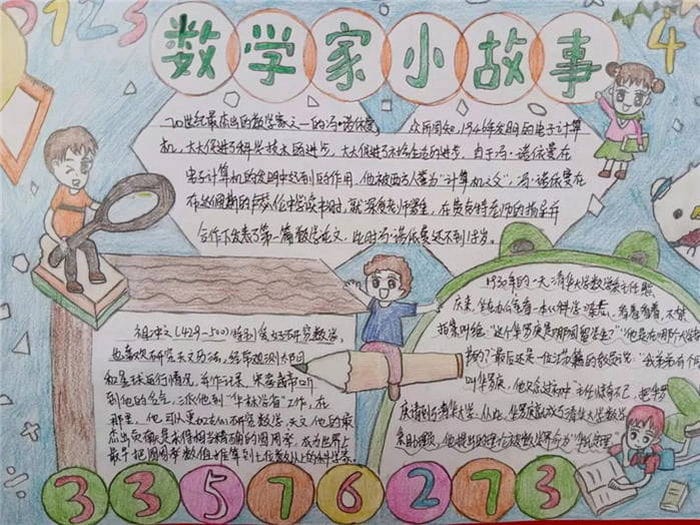 0123
数学家小故事
4
20世纪最杰出的数学家之一的冯·诺依曼
众所周知,1946年发明的电子计算
机,大大促进了科学技术的进步,大大促进了社会生活的进步,由于冯·诺依曼在
电子计算机的发明中起到的作用,他被西方人誉为"计算机之父",冯·诺依曼在
在布达佩斯的卢瑟伦中学读书时,就深受老师器重,在费克特老师的指导并
合作下发表了第一篇数学论文,此时冯·诺依曼还不到18岁。
祖冲之(429-500)特别爱好研究数学,
也喜欢研究天文历法,经常观测太阳
和星球运行情况,并作记录,宋孝武帝听
到他的名气,派他到"华林学省"工作,在
那里,他可以更加专心研究数学,天文,他的最
杰出贡献是求得相当精确的圆周率,成为世界上
最早把圆周率数值推算到七位数以上的科学家。
1930年的一天,清华大学数学系主任熊
庆来,坐在办公室看一本《科学》杂志,看着看着,不禁
拍案叫绝,"这个华罗庚是哪国留学生?""他是在哪个大学教
书的?"最后还是一位江苏籍的教员说:"我弟弟有个
叫华罗庚,他只念过初中"主任惊奇不已,把华罗
庚请到了清华大学,从此,华罗庚就成了清华大学数学
他提出的理论被数学界命为"华氏定理
3 3 5 7 6 2 7 3